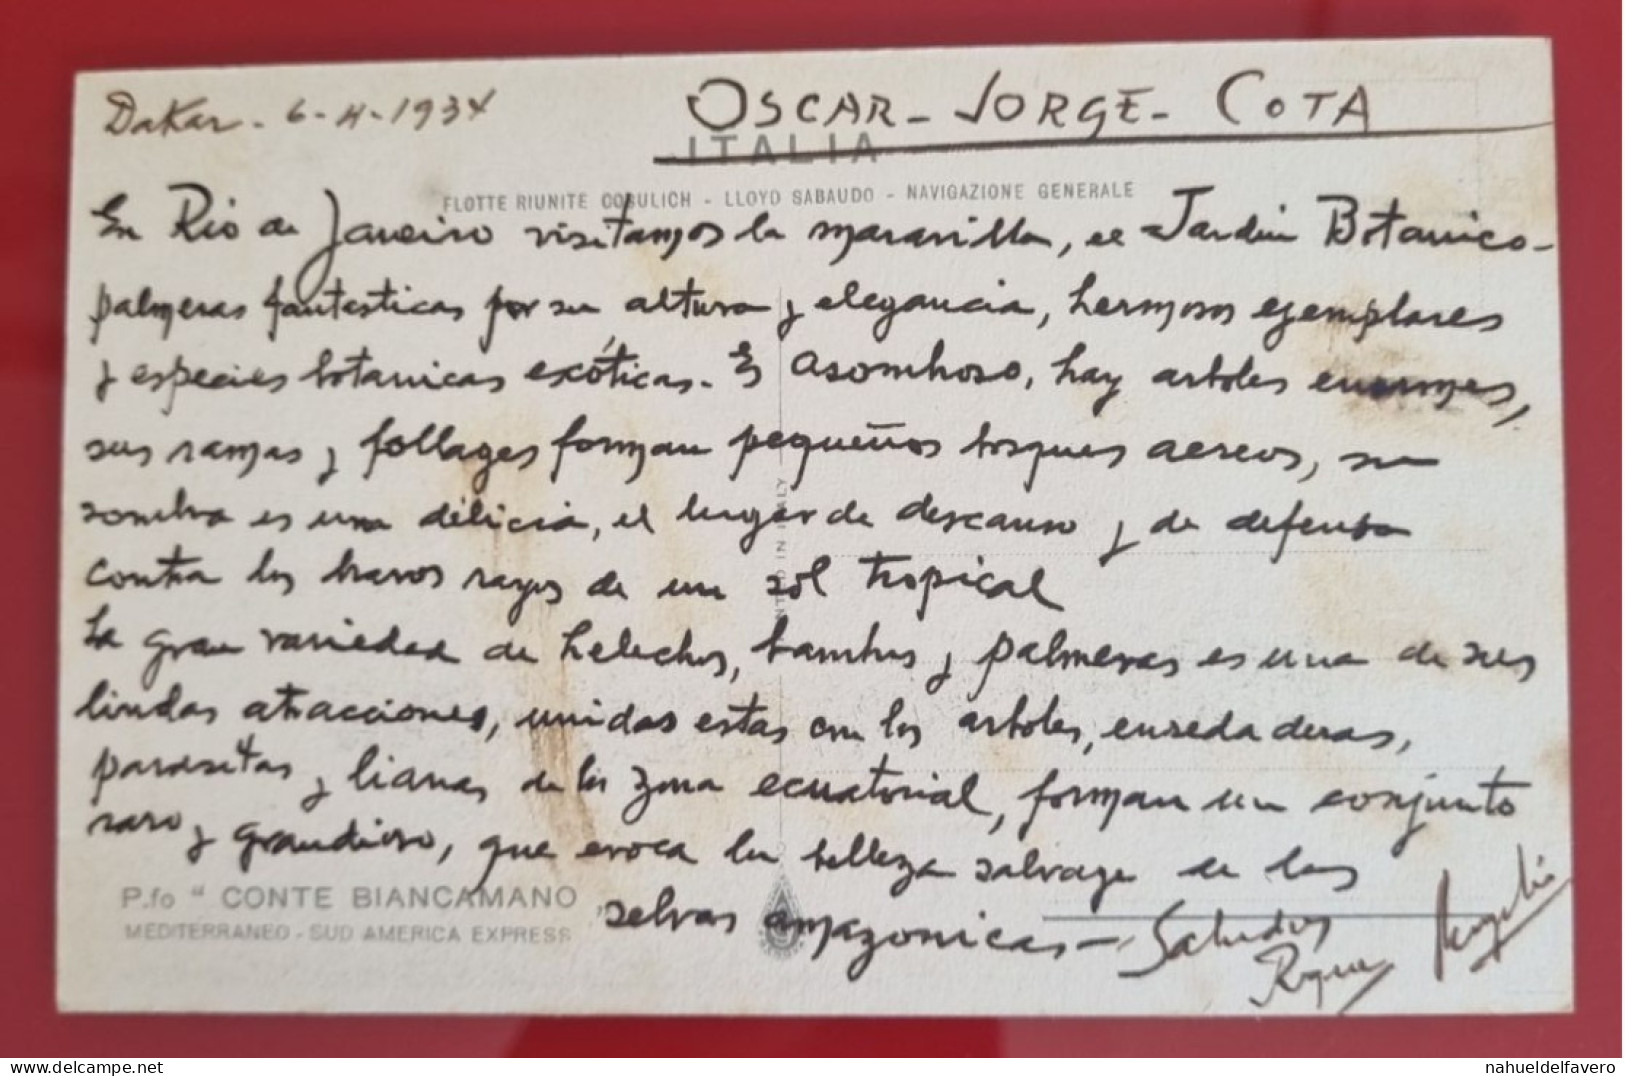 Dakar - 6-4-1934
OSCAR - JORGE - COTA
ITALIA
FLOTTE RIUNITE COSULICH - LLOYD SABAUDO - NAVIGAZIONE GENERALE
En Rio de Janeiro visitamos la maravilla, el Jardin Botanico -
palmeras fantasticas por su altura y elegancia, hermosos ejemplares
y especies botanicas exóticas. Es asombroso, hay arboles enormes,
sus ramas y follages forman pequeños bosques aereos, su
sombra es una delicia, el lugar de descanso y de defensa
contra los bravos rayos de un sol tropical
La gran variedad de helechos, bambus y palmeras es una de sus
lindas atracciones, unidas estas con los arboles, enredaderas,
parasitas y lianas de la zona ecuatorial, forman un conjunto
raro y grandioso, que evoca la belleza salvage de las
selvas amazonicas - Saludos
P.fo " CONTE BIANCAMANO
MEDITERRANEO - SUD AMERICA EXPRESS
IN ITALY
nahueldelfavero
www.delcampe.net